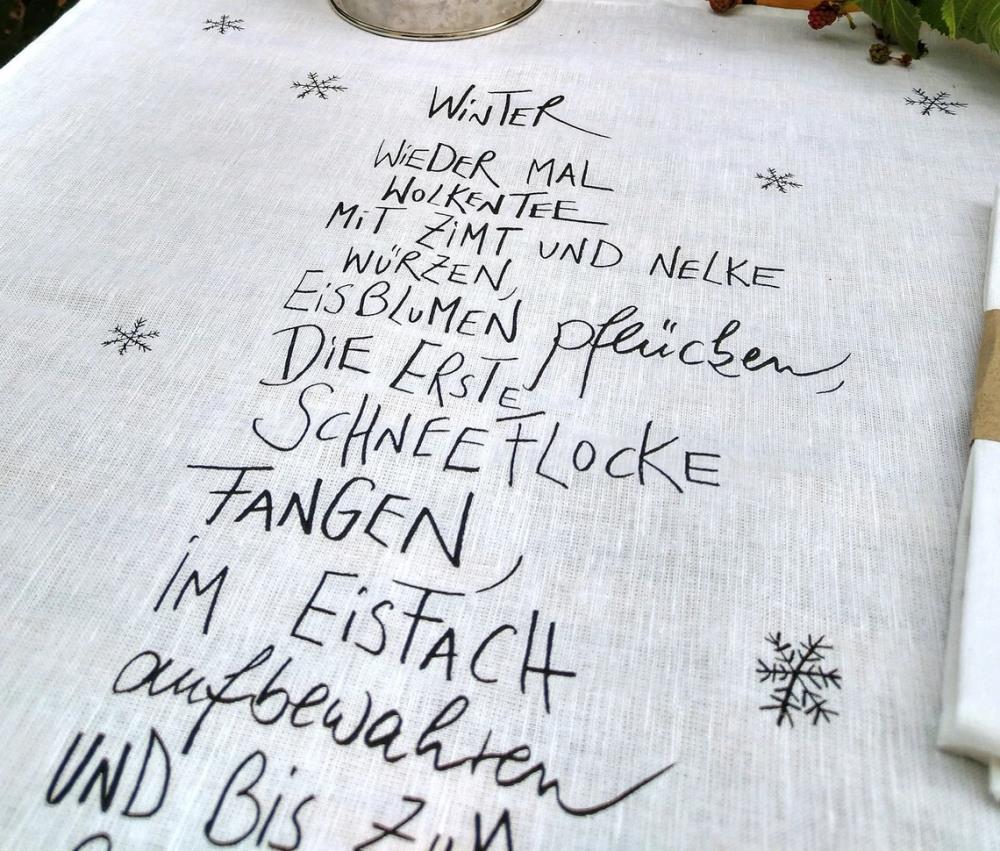 WiNTER
WiEDER MAL
WOLKENTEE
MiT ZiMT UND NELKE
WÜRZEN,
EiSBLUMEN pflücken,
DiE ERSTE
SCHNEEFLOCKE
FANGEN,
iM EiSFACH
aufbewahren
UND BiS ZUM